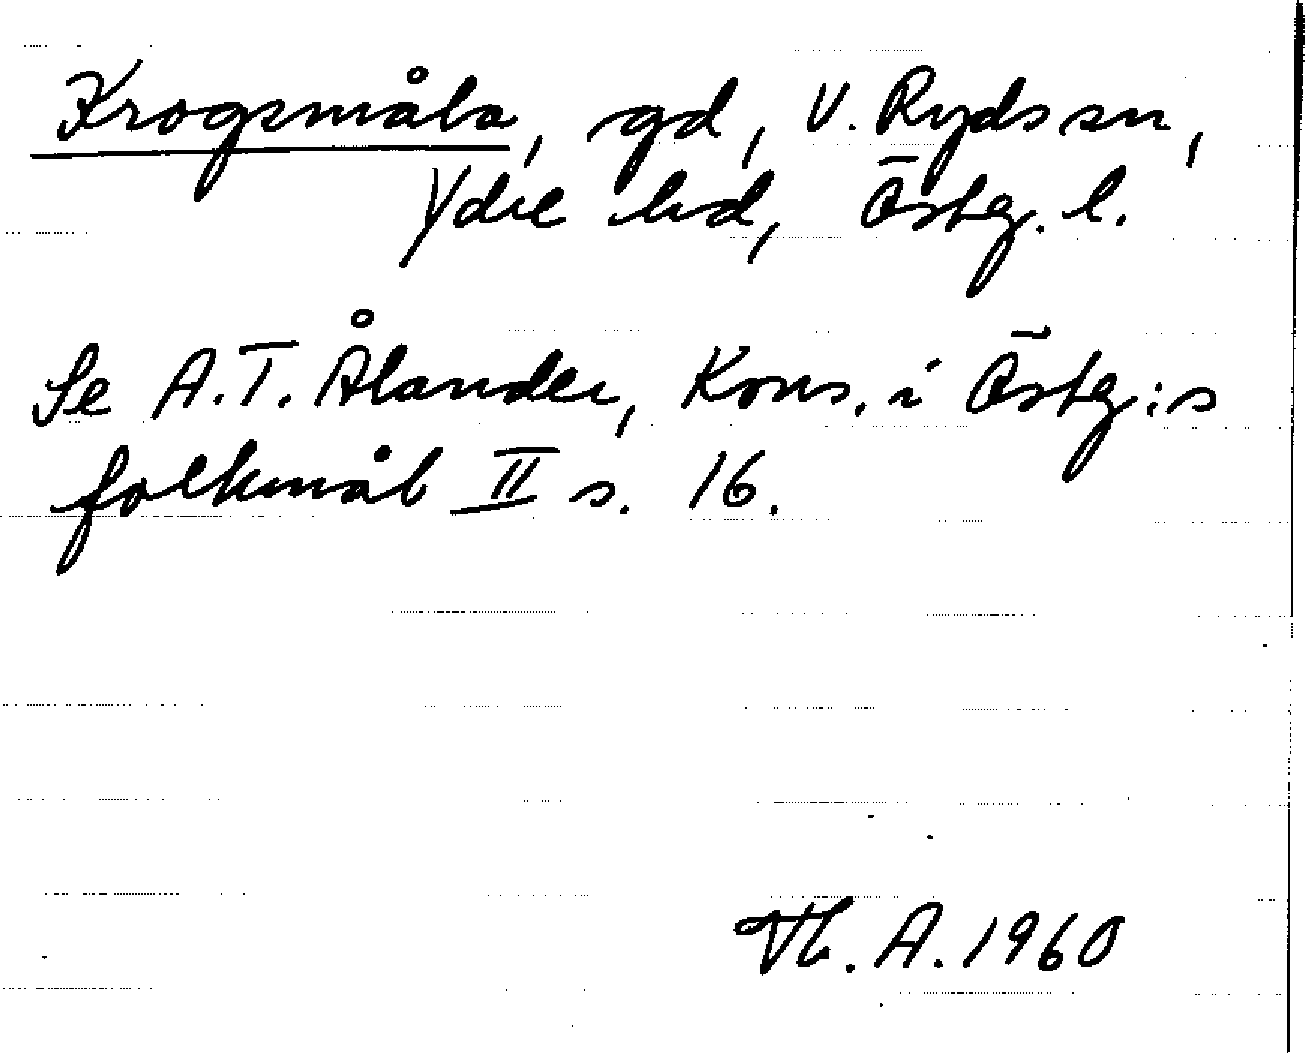 Krogsmåla, gd, V. Ryds sn,
Ydre hd, Östg. l.
Se A. T. Ålander, Kons. i Östg:s
folkmål II s. 16.
Th. A. 1960